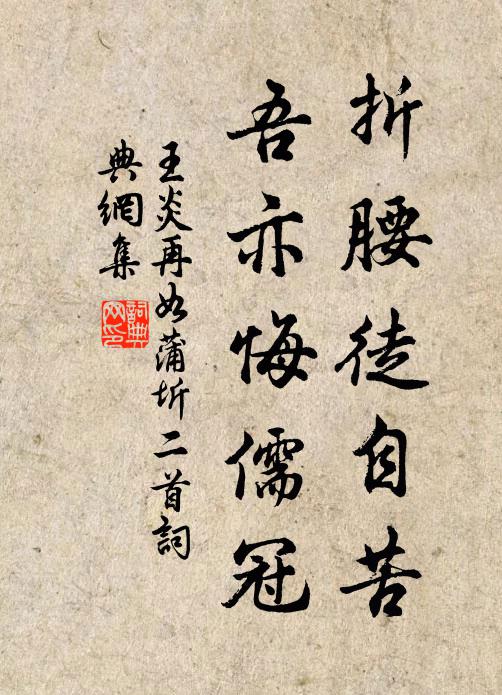 折腰徒自苦
吾亦悔儒冠
王炎再如蒲圻二首詞
典網集
詞典
网印